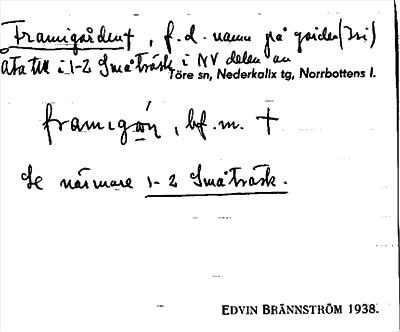 Framigården†, f.d. namn på gården (Tri)
ata till i 1-2 Småträsk i NV delen av
Töre sn, Nederkalix tg, Norrbottens l.
framigón, bf. m. †
Se närmare 1-2 Småträsk.
EDVIN BRÄNNSTRÖM 1938.